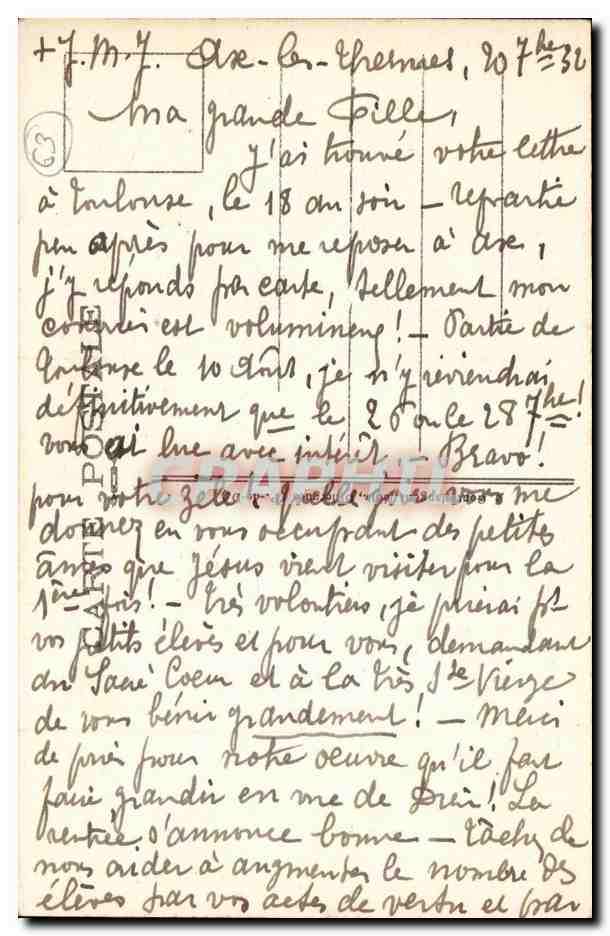 + J. M. J. Ax-les-Thermes, 20 7bre 32
63
Ma grande Fille,
J'ai trouvé votre lettre
à Toulouse, le 18 au soir - repartie
peu après pour me reposer à Ax,
j'y réponds par carte, tellement mon
courrier est volumineux! - Partie de
Toulouse le 10 Août, je n'y reviendrai
définitivement que le 26 ou le 28 7bre!
vous ai lue avec intérêt - Bravo!
pour votre zèle, quelle joie vous me
donnez en vous occupant des petites
âmes que Jésus vient visiter pour la
1ère fois! - Très volontiers, je prierai pr
vos petits élèves et pour vous, demandant
au Sacré Coeur et à la Très Ste Vierge
de vous bénir grandement! - Merci
de prier pour notre oeuvre qu'il faut
faire grandir en vue de Dieu! La
rentrée s'annonce bonne - Tâchez de
nous aider à augmenter le nombre des
élèves par vos actes de vertu et par
CARTE POSTALE